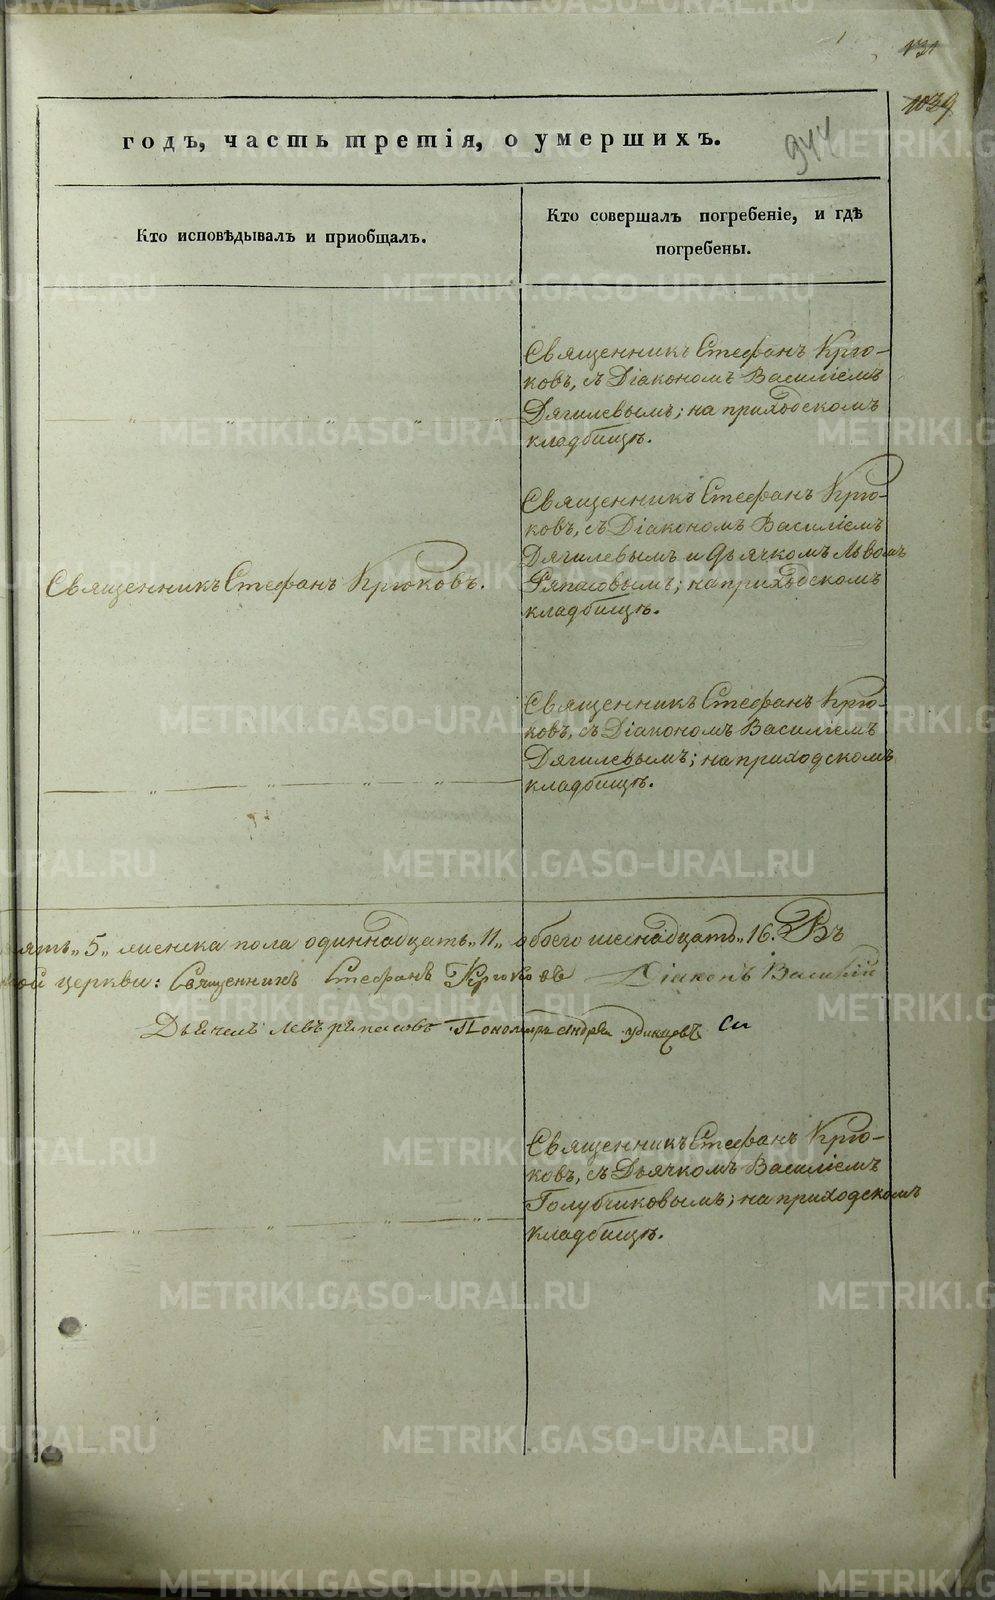 131
1039
944
годъ, часть третія, о умершихъ.
Кто исповѣдывалъ и приобщалъ.
Кто совершалъ погребеніе, и гдѣ
погребены.
Священникъ Стефанъ Крю-
ковъ, съ Діакономъ Василіемъ
Дягилевымъ; на приходскомъ
кладбищѣ.
Священникъ Стефанъ Крюковъ.
Священникъ Стефанъ Крю-
ковъ, съ Діакономъ Василіемъ
Дягилевымъ и Дьячкомъ Львомъ
Ряпасовымъ; на приходскомъ
кладбищѣ.
Священникъ Стефанъ Крю-
ковъ, съ Діакономъ Василіемъ
Дягилевымъ; на приходскомъ
кладбищѣ.
ять „5„ женска пола одиннадцать „11„ обоего шеснадцать „16. Въ
церкви: Священникъ Стефанъ Крюковъ Діаконъ Василій
Дьячекъ Левъ Ряпасовъ Пономарь Андрей
Священникъ Стефанъ Крю-
ковъ, съ Дьячкомъ Василіемъ
Голубчиковымъ; на приходскомъ
кладбищѣ.
METRIKI.GASO-URAL.RU